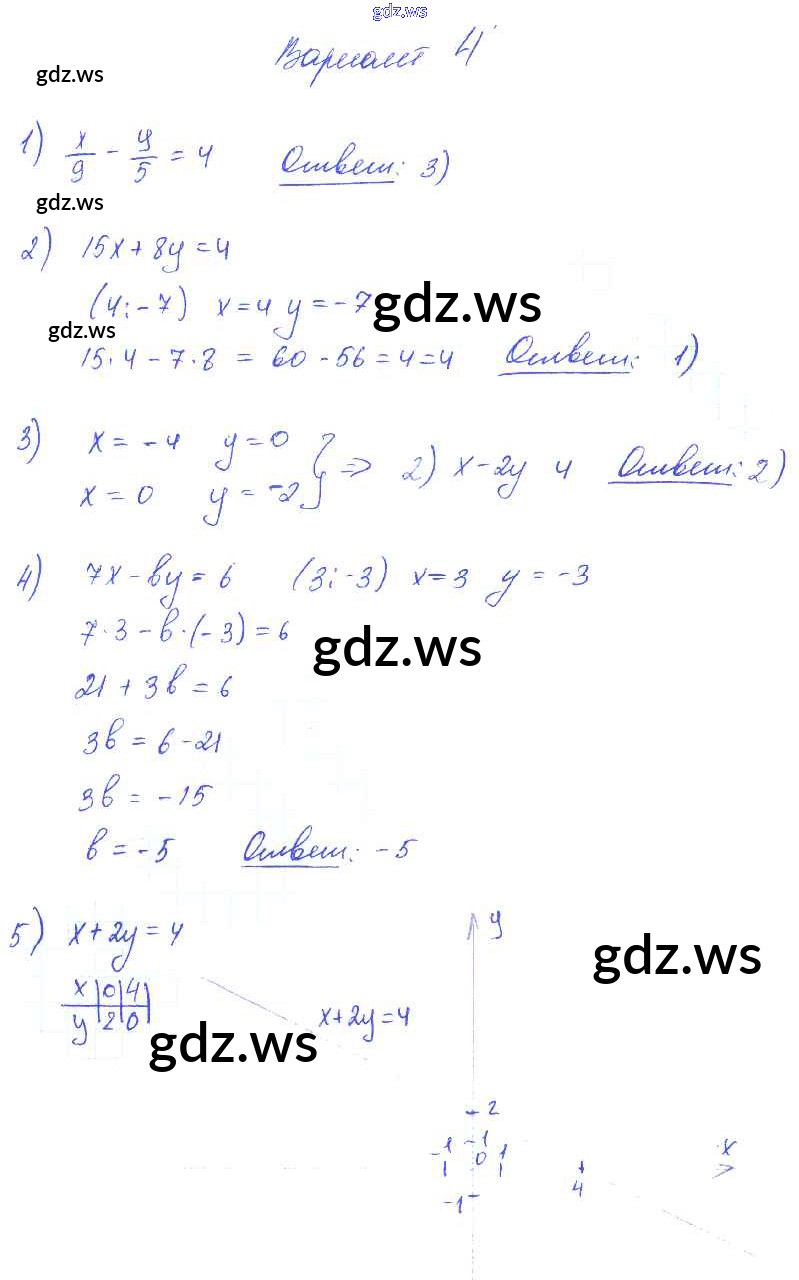 gdz.ws
Вариант 4
gdz.ws
1) x/9 - y/5 = 4 Ответ: 3)
gdz.ws
2) 15x + 8y = 4
(4; -7) x = 4 y = -7
gdz.ws
gdz.ws
15·4 - 7·8 = 60 - 56 = 4 = 4 Ответ: 1)
3) x = -4 y = 0
x = 0 y = -2 } => 2) x - 2y 4 Ответ: 2)
4) 7x - by = 6 (3; -3) x = 3 y = -3
7·3 - b·(-3) = 6
gdz.ws
21 + 3b = 6
3b = 6 - 21
3b = -15
b = -5 Ответ: -5
5) x + 2y = 4
y
gdz.ws
x | 0 | 4
y | 2 | 0
x + 2y = 4
gdz.ws
2
-1 1 0 1 x
4
-1